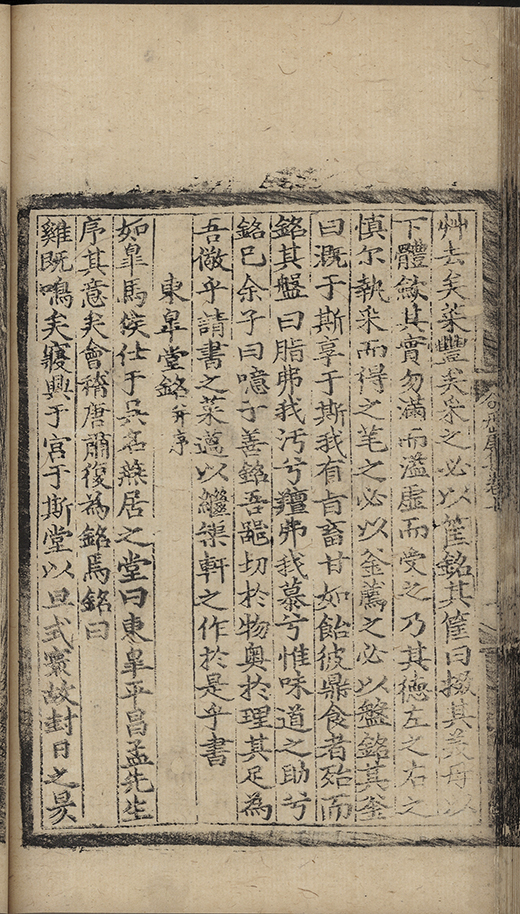 艸去矣菜豐矣采之必以筐銘其筐曰掇其美毋以
下體歛其實勿滿而溢虛而受之乃其德左之右之
慎尔執采而得之芼之必以釡薦之必以盤銘其釡
曰溉于斯享于斯我有旨畜甘如飴彼鼎食者殆而
銘其盤曰脂弗我汚兮羶弗我慕兮惟味道之助兮
銘已余子曰噫子善銘吾噐切於物奥於理其足為
吾儆乎請書之菜薖以繼柴軒之作於是乎書
東皐堂銘并序
如皐馬侯仕于吳名燕居之堂曰東皐平昌孟先生
序其意矣會稽唐肅復為銘焉銘曰
雞既鳴矣寢興于宫于斯堂以旦式寅故封日之昃